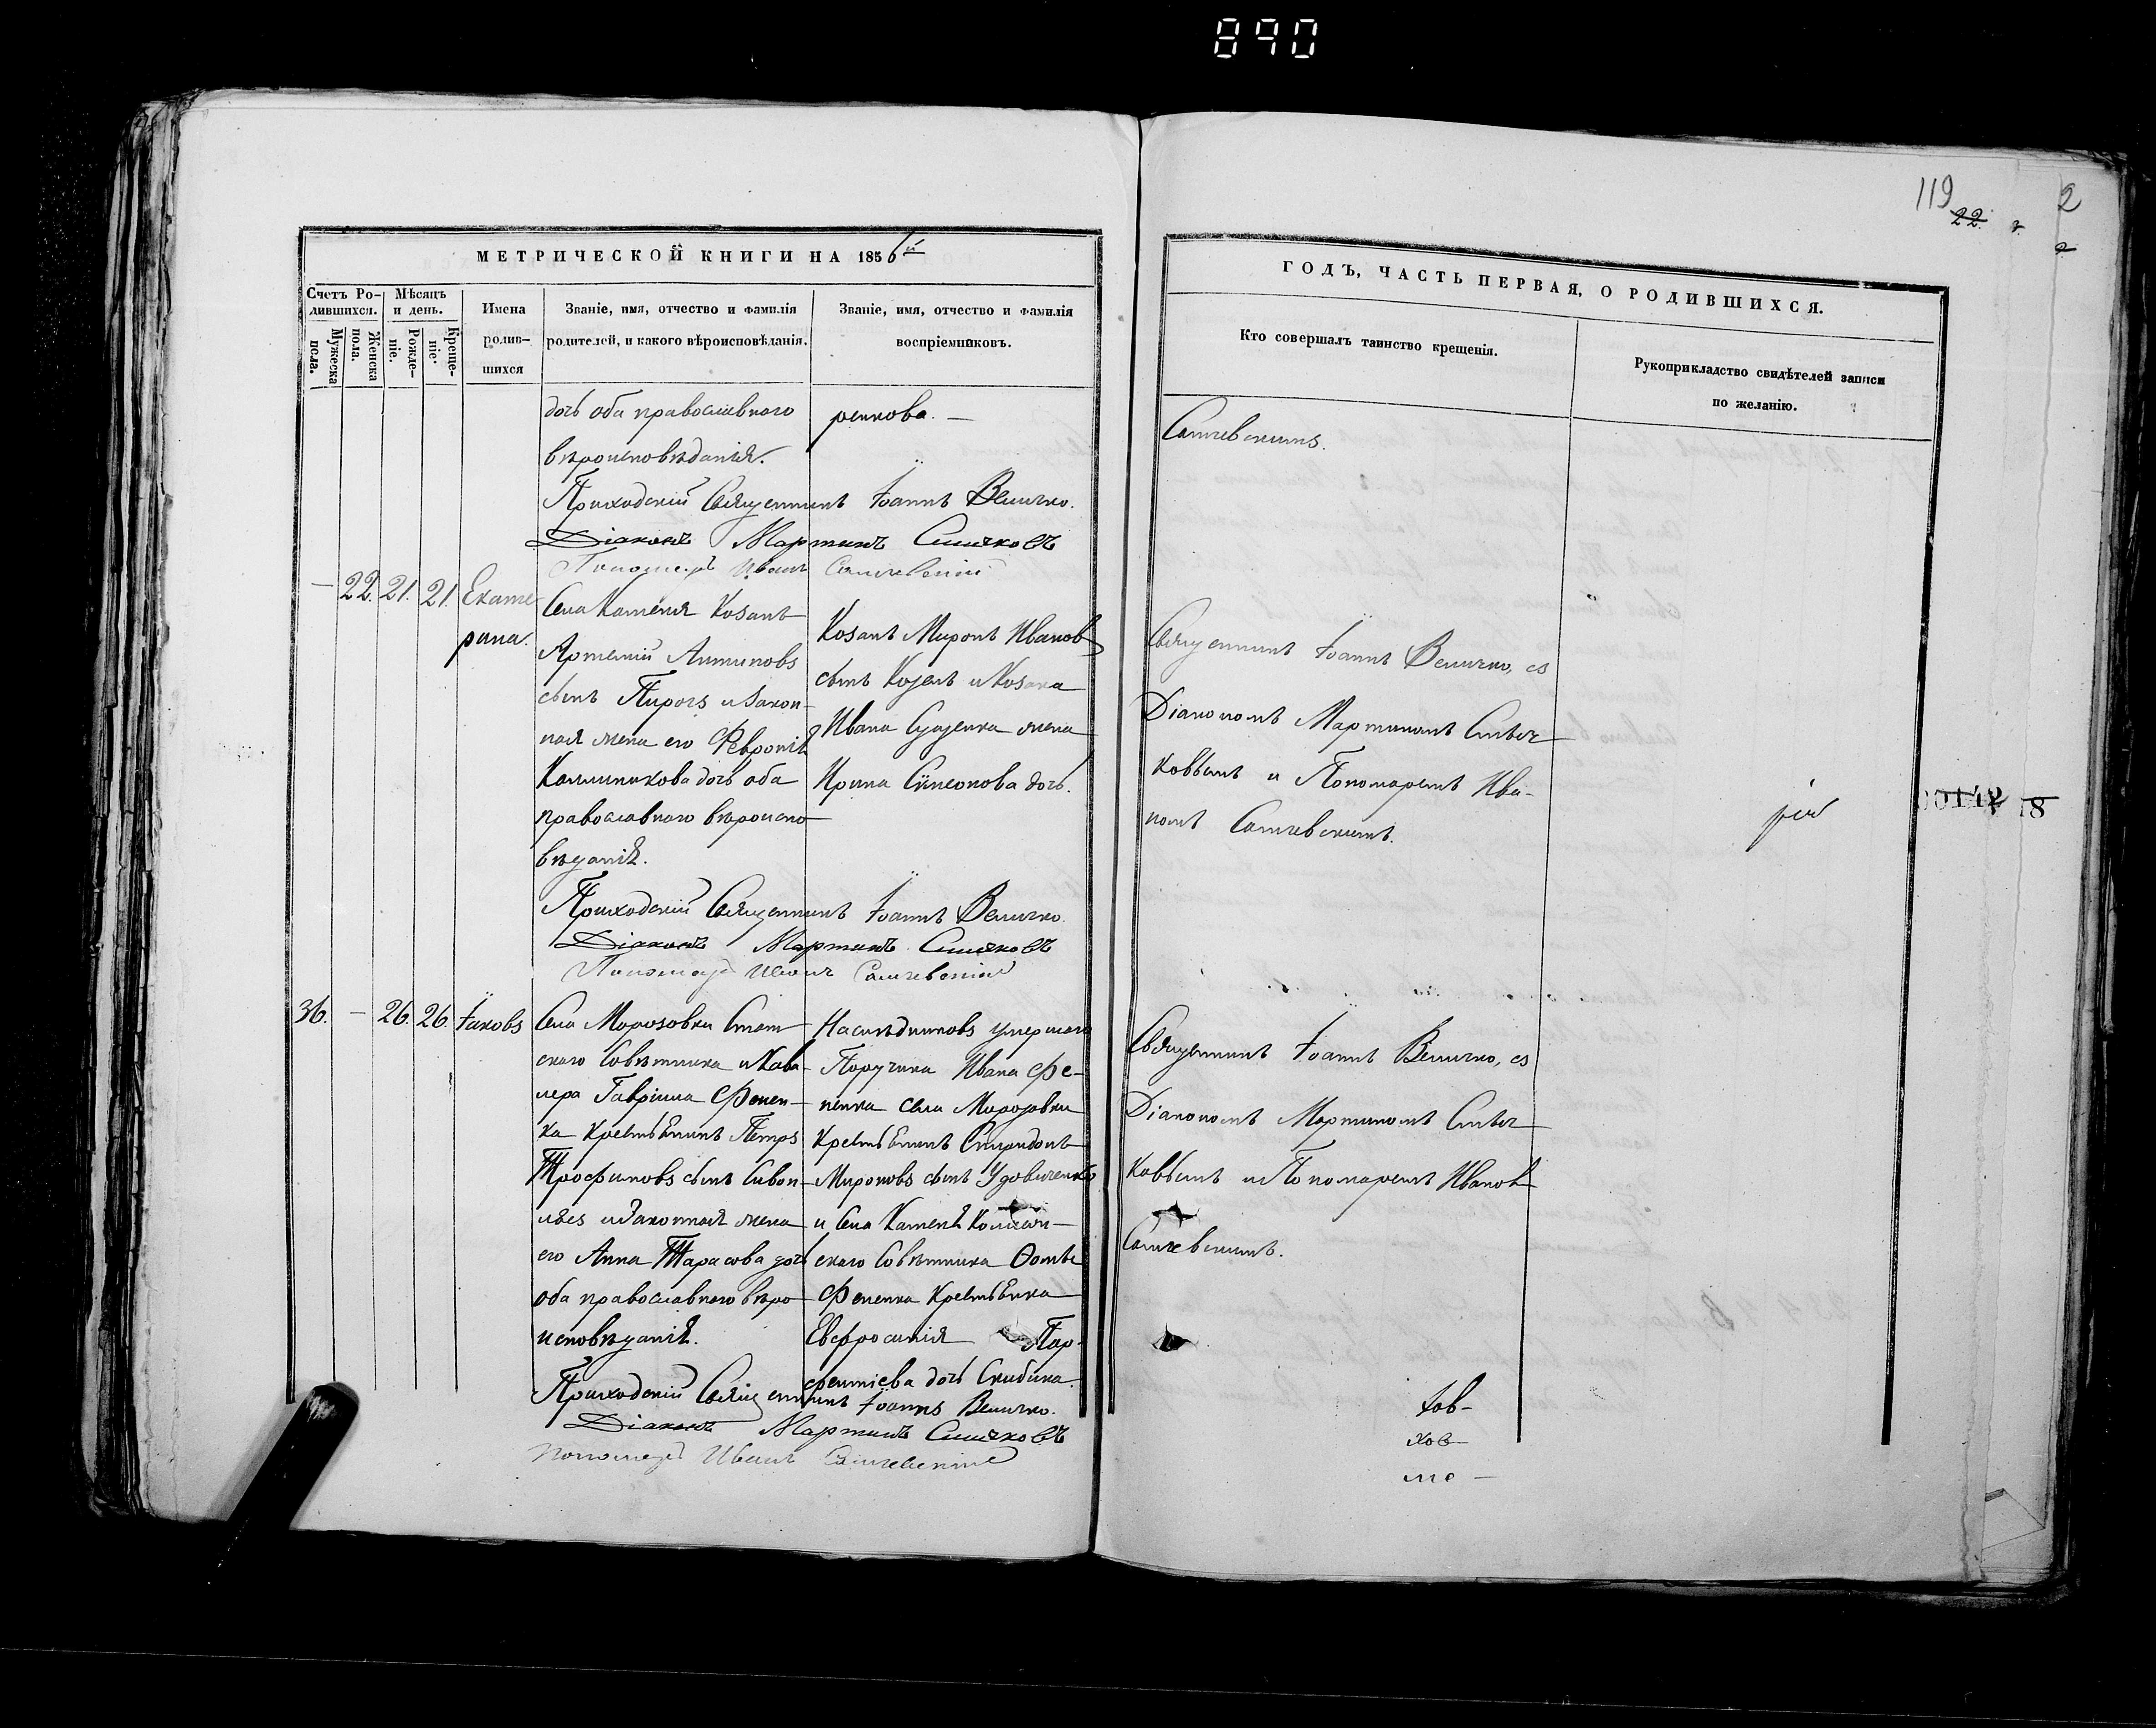 890
119
22
2
МЕТРИЧЕСКОЙ КНИГИ НА 1856й
Счетъ Родившихся.
Мѣсяцъ и день.
Имена родившихся
Званіе, имя, отчество и фамилія родителей, и какого вѣроисповѣданія.
Званіе, имя, отчество и фамилія воспріемниковъ.
Мужеска пола.
Женска пола.
Рожденіе.
Крещеніе.
дочь оба православного
вѣроисповѣданія.
ренкова. —
Приходскій Священникъ Іоаннъ Величко.
Діаконъ Мартинъ
Пономарь Иванъ
— 22. 21. 21. Екатерина.
Села Каменя Козакъ
Артемій Антиповъ
сынъ Пирогъ и закон-
ная жена его Февронія
Каллиникова дочь оба
православного вѣроиспо-
вѣданія.
Козакъ Миронъ Ивановъ
сынъ Козелъ и Козака
Ивана жена
Ирина Симеонова дочь.
Приходскій Священникъ Іоаннъ Величко.
Діаконъ Мартинъ
Пономарь Иванъ
36. — 26. 26. Іаковъ
Села Морозовки Стат-
ского Совѣтника и Кава-
лера Гавріила Фенен-
ка Крестьянинъ Петръ
Трофимовъ сынъ
и законная жена
его Анна Тарасова дочь
оба православного вѣро-
исповѣданія.
Наслѣдниковъ умершаго
Поручика Ивана Фе-
ненка села Морозовки
Крестьянинъ Спиридонъ
Мироновъ сынъ Удовиченко
и Села Каменя
ского Совѣтника Ѳомы
Фененка Крестьянка
Евфросинія Пар-
феніева дочь Скибина.
Приходскій Священникъ Іоаннъ Величко.
Діаконъ Мартинъ
Пономарь Иванъ
ГОДЪ, ЧАСТЬ ПЕРВАЯ, О РОДИВШИХСЯ.
Кто совершалъ таинство крещенія.
Рукоприкладство свидѣтелей записи
по желанію.
Священникъ Іоаннъ Величко, съ
Діакономъ Мартиномъ
ковымъ и Пономаремъ Ива-
номъ
Священникъ Іоаннъ Величко, съ
Діакономъ Мартиномъ
ковымъ и Пономаремъ Иваномъ